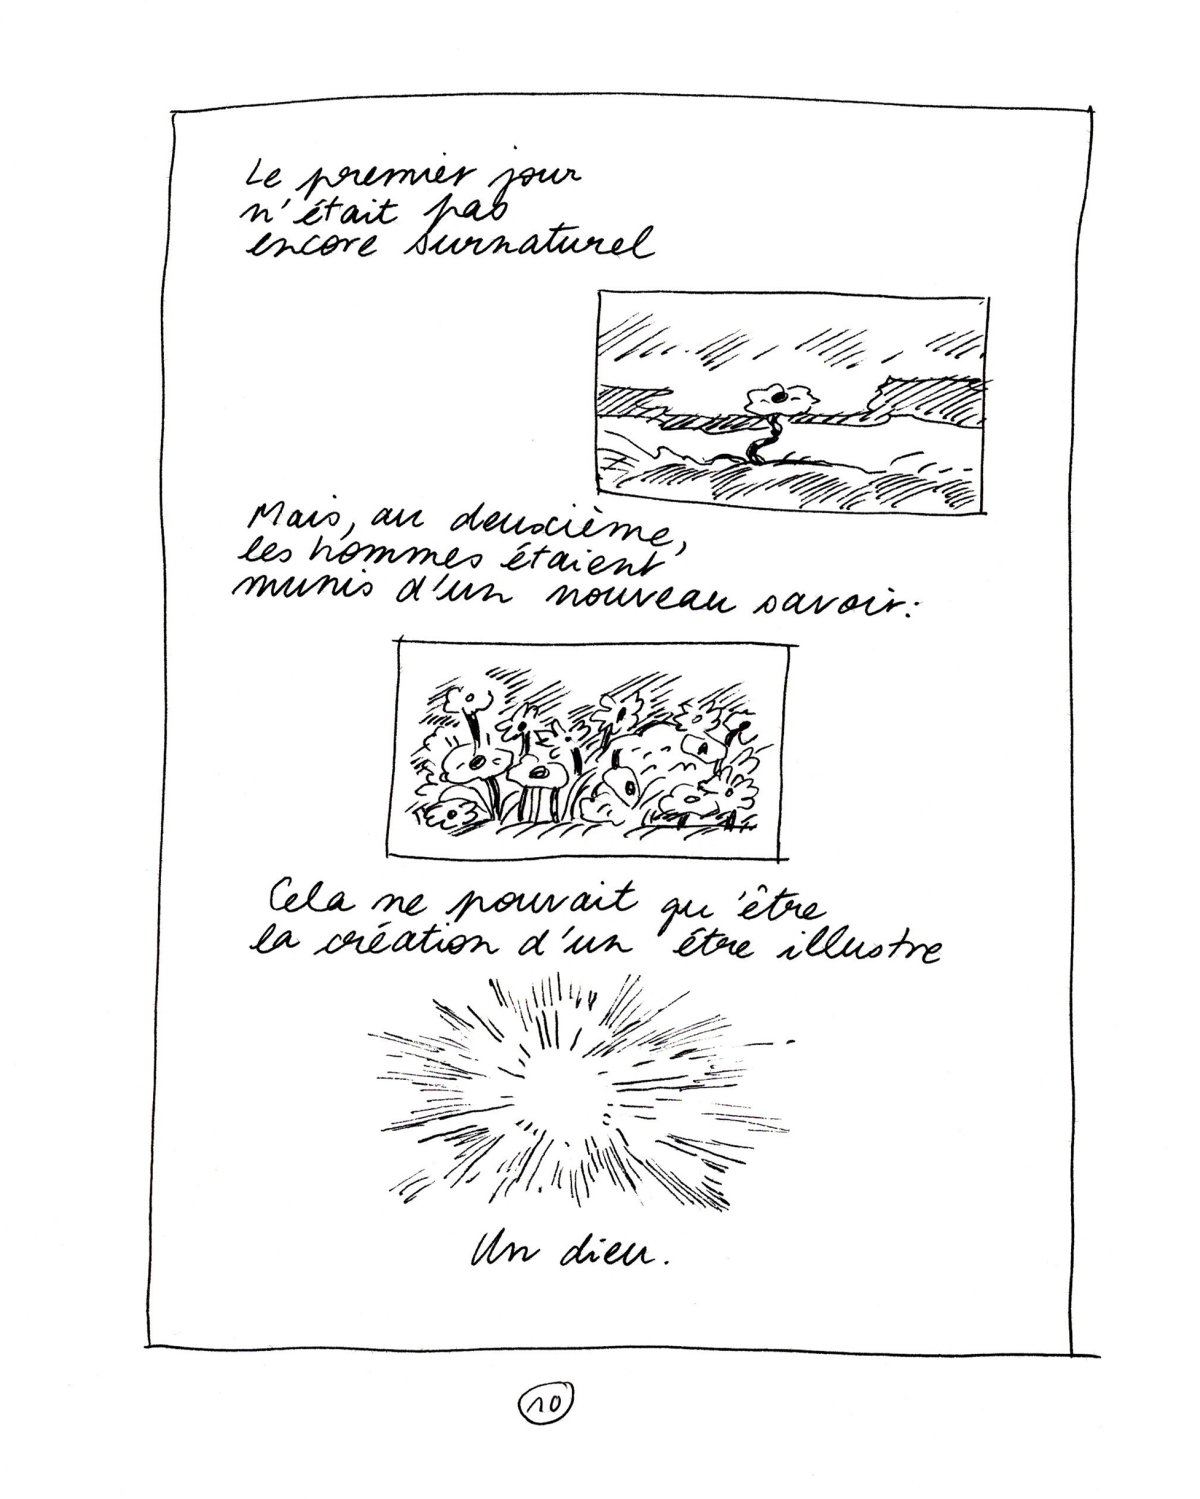 Le premier jour
n'était pas
encore surnaturel
Mais, au deuxième,
les hommes étaient
munis d'un nouveau savoir:
Cela ne pouvait qu'être
la création d'un être illustre
Un dieu.
10